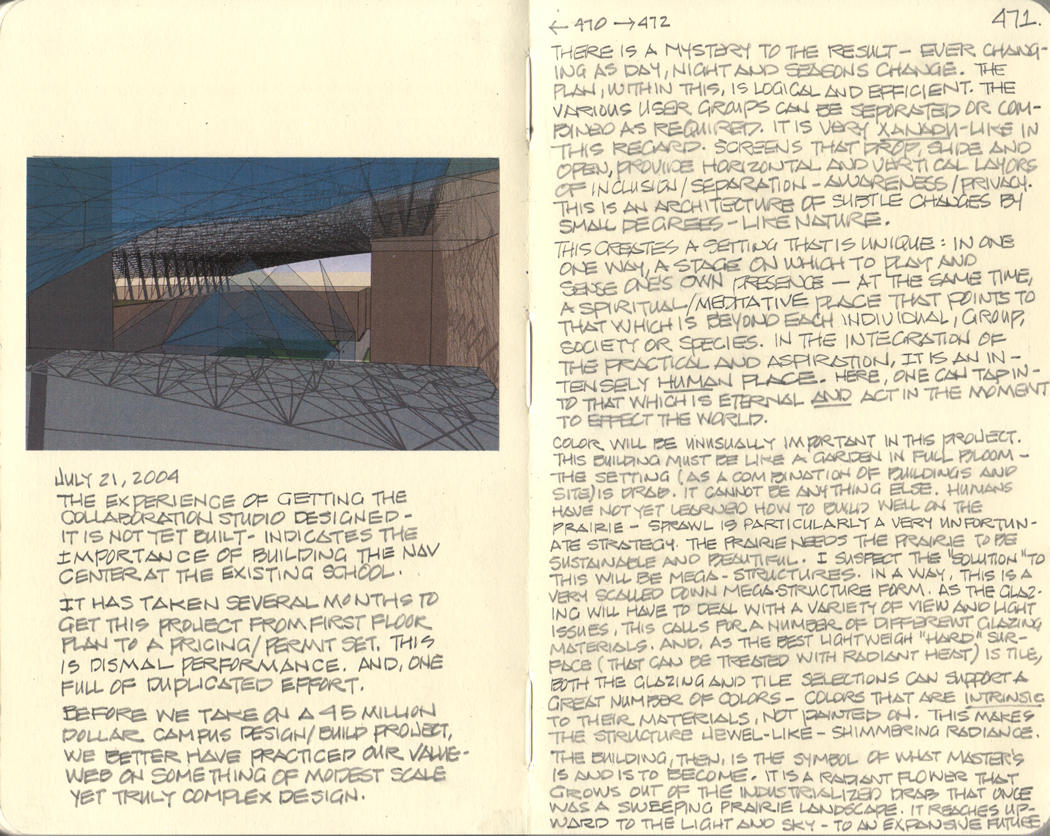 JULY 21, 2004
THE EXPERIENCE OF GETTING THE
COLLABORATION STUDIO DESIGNED -
IT IS NOT YET BUILT - INDICATES THE
IMPORTANCE OF BUILDING THE NAV
CENTER AT THE EXISTING SCHOOL.
IT HAS TAKEN SEVERAL MONTHS TO
GET THIS PROJECT FROM FIRST FLOOR
PLAN TO A PRICING/PERMIT SET. THIS
IS DISMAL PERFORMANCE. AND, ONE
FULL OF DUPLICATED EFFORT.
BEFORE WE TAKE ON A 45 MILLION
DOLLAR CAMPUS DESIGN/BUILD PROJECT,
WE BETTER HAVE PRACTICED OUR VALUE-
WEB ON SOMETHING OF MODEST SCALE
YET TRULY COMPLEX DESIGN.
← 470 → 472
471.
THERE IS A MYSTERY TO THE RESULT - EVER CHANG-
ING AS DAY, NIGHT AND SEASONS CHANGE. THE
PLAN, WITHIN THIS, IS LOGICAL AND EFFICIENT. THE
VARIOUS USER GROUPS CAN BE SEPORATED OR COM-
BINED AS REQUIRED. IT IS VERY XANADU-LIKE IN
THIS REGARD. SCREENS THAT DROP, SLIDE AND
OPEN, PROVIDE HORIZONTAL AND VERTICAL LAYORS
OF INCLUSION/SEPARATION - AWARENESS/PRIVACY.
THIS IS AN ARCHITECTURE OF SUBTLE CHANGES BY
SMALL DEGREES - LIKE NATURE.
THIS CREATES A SETTING THAT IS UNIQUE: IN ONE
ONE WAY, A STAGE ON WHICH TO PLAY AND
SENSE ONE'S OWN PRESENCE - AT THE SAME TIME,
A SPIRITUAL/MEDITATIVE PLACE THAT POINTS TO
THAT WHICH IS BEYOND EACH INDIVIDUAL, GROUP,
SOCIETY OR SPECIES. IN THE INTEGRATION OF
THE PRACTICAL AND ASPIRATION, IT IS AN IN-
TENSELY HUMAN PLACE. HERE, ONE CAN TAP IN-
TO THAT WHICH IS ETERNAL AND ACT IN THE MOMENT
TO EFFECT THE WORLD.
COLOR WILL BE UNUSUALLY IMPORTANT IN THIS PROJECT.
THIS BUILDING MUST BE LIKE A GARDEN IN FULL BLOOM -
THE SETTING (AS A COMBINATION OF BUILDINGS AND
SITE) IS DRAB. IT CANNOT BE ANYTHING ELSE. HUMANS
HAVE NOT YET LEARNED HOW TO BUILD WELL ON THE
PRAIRIE - SPRAWL IS PARTICULARLY A VERY UNFORTUN-
ATE STRATEGY. THE PRAIRIE NEEDS THE PRAIRIE TO BE
SUSTAINABLE AND BEAUTIFUL. I SUSPECT THE "SOLUTION" TO
THIS WILL BE MEGA-STRUCTURES. IN A WAY, THIS IS A
VERY SCALLED DOWN MEGA-STRUCTURE FORM. AS THE GLAZ-
ING WILL HAVE TO DEAL WITH A VARIETY OF VIEW AND LIGHT
ISSUES, THIS CALLS FOR A NUMBER OF DIFFERENT GLAZING
MATERIALS. AND, AS THE BEST LIGHTWEIGH "HARD" SUR-
FACE (THAT CAN BE TREATED WITH RADIANT HEAT) IS TILE,
BOTH THE GLAZING AND TILE SELECTIONS CAN SUPPORT A
GREAT NUMBER OF COLORS - COLORS THAT ARE INTRINSIC
TO THEIR MATERIALS, NOT PAINTED ON. THIS MAKES
THE STRUCTURE JEWEL-LIKE - SHIMMERING RADIANCE.
THE BUILDING, THEN, IS THE SYMBOL OF WHAT MASTER'S
IS AND IS TO BECOME. IT IS A RADIANT FLOWER THAT
GROWS OUT OF THE INDUSTRIALIZED DRAB THAT ONCE
WAS A SWEEPING PRAIRIE LANDSCAPE. IT REACHES UP-
WARD TO THE LIGHT AND SKY - TO AN EXPANSIVE FUTURE.